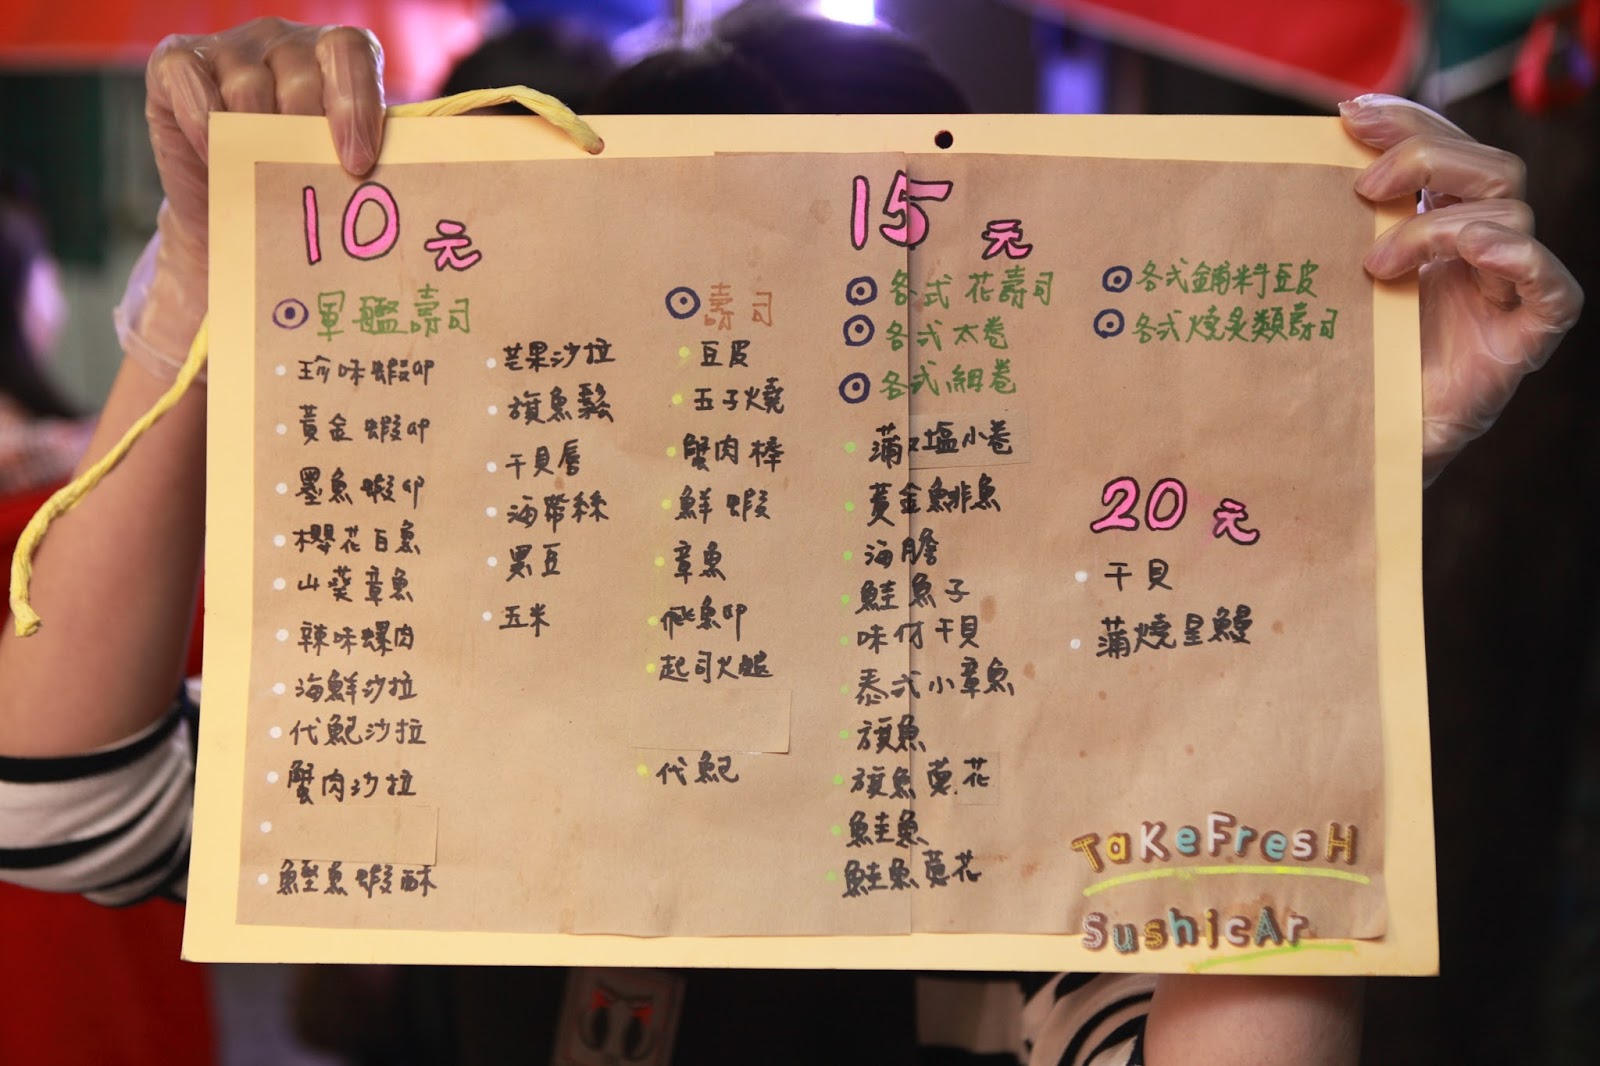 10元
軍艦壽司
珍味蝦卵
黃金蝦卵
墨魚蝦卵
櫻花百魚
山葵章魚
辣味螺肉
海鮮沙拉
代魤沙拉
蟹肉沙拉
蝦酥
芒果沙拉
旗魚鬆
干貝唇
海帶絲
黑豆
玉米
壽司
豆皮
玉子燒
蟹肉棒
鮮蝦
章魚
飛魚卵
起司火腿
代魤
15元
各式花壽司
各式太卷
各式細卷
塩小卷
黃金鯡魚
海膽
鮭魚子
味付干貝
泰式小章魚
旗魚
旗魚蔥花
鮭魚
鮭魚蔥花
各式鋪料豆皮
各式燒炙類壽司
20元
干貝
蒲燒星鰻
TaKeFresH
SushicAr